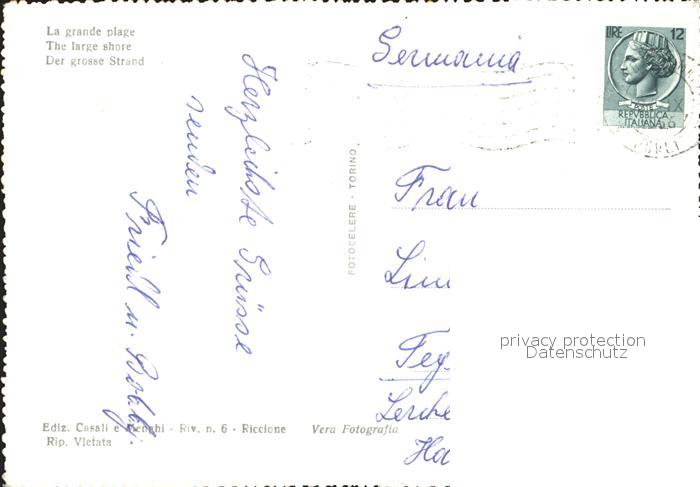 La grande plage
The large shore
Der grosse Strand
Herzlichste Grüsse
senden
Friedl u. Bobby.
Germania
LIRE 12
POSTE
REPVBBLICA
ITALIANA
FOTOCELERE - TORINO
Frau
privacy protection
Datenschutz
Lerche
Ha
Ediz. Casali e Menghi - Riv. n. 6 - Riccione Vera Fotografia
Rip. Vietata